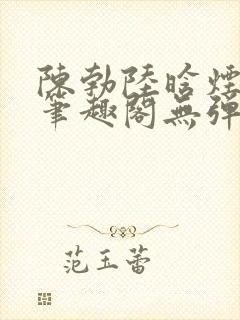 陳勃陸晗煙
筆趣閣無彈
范玉蕾